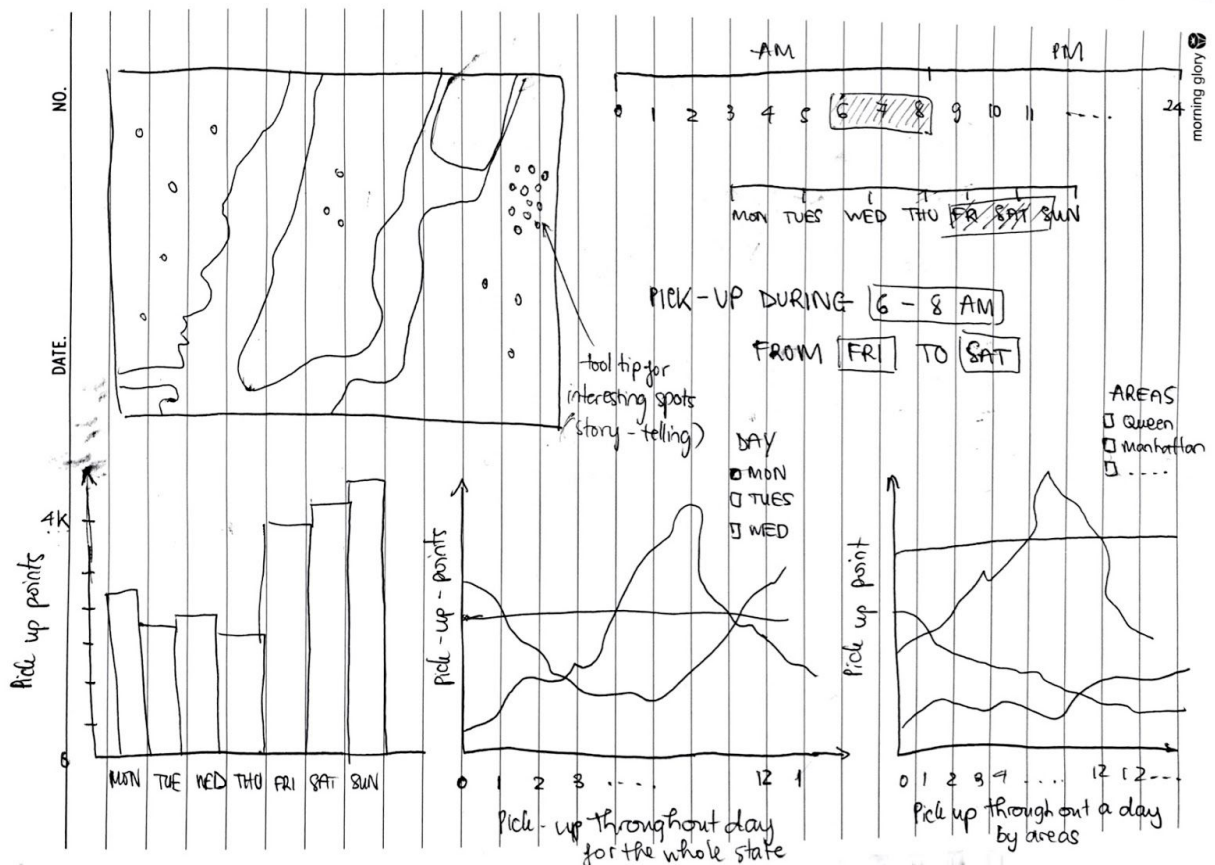 NO.
DATE.
morning glory
AM PM
0 1 2 3 4 5 6 7 8 9 10 11 ..... 24
MON TUES WED THU FRI SAT SUN
PICK-UP DURING 6 - 8 AM
FROM FRI TO SAT
tool tip for
interesting spots
(story-telling)
DAY
MON
TUES
WED
AREAS
Queen
Manhattan
.....
Pick up points
4K
0
MON TUE WED THU FRI SAT SUN
Pick-up-points
0 1 2 3 ..... 12 1
Pick-up throughout day
for the whole state
Pick up point
0 1 2 3 4 ..... 12 12...
Pick up throughout a day
by areas